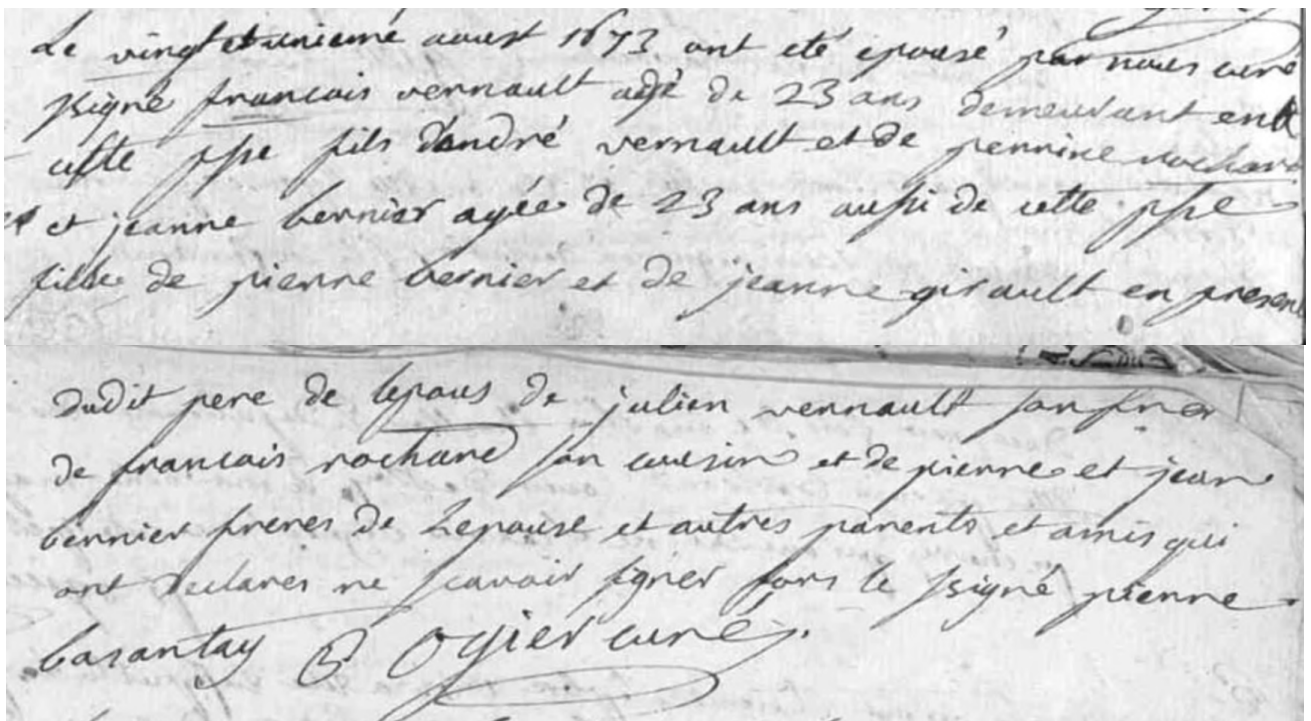 Le vingt et unieme aoust 1673 ont eté epousé par nous curé
ssigné francois vernault agé de 23 ans demeurant en
cette psse fils d'andré vernault et de perrine rochard
et jeanne bernier agee de 23 ans aussi de cette psse
fille de pierre bernier et de jeanne girault en presen
dudit pere de lepous de julien vernault son frer
de francois rochard son cousin et de pierre et jean
bernier freres de Lepouse et autres parents et amis qui
ont declares ne scavoir signer fors le ssigné pierre
basantay Ogier curé